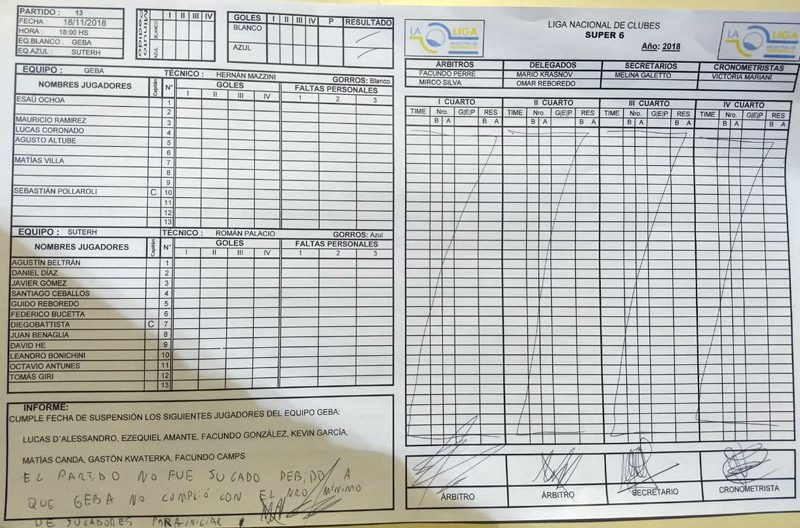 PARTIDO : 13
FECHA : 18/11/2018
HORA : 18:00 HS
EQ.BLANCO : GEBA
EQ.AZUL : SUTERH
I II III IV
BLANCO
AZUL
GOLES I II III IV P RESULTADO
BLANCO
AZUL
EQUIPO : GEBA TÉCNICO : HERNÁN MAZZINI GORROS: Blanco
NOMBRES JUGADORES Capitán N° GOLES FALTAS PERSONALES
I II III IV 1 2 3
ESAÚ OCHOA 1
2
MAURICIO RAMIREZ 3
LUCAS CORONADO 4
AGUSTO ALTUBE 5
6
MATÍAS VILLA 7
8
9
SEBASTIÁN POLLAROLI C 10
11
12
13
EQUIPO : SUTERH TÉCNICO : ROMÁN PALACIO GORROS: Azul
NOMBRES JUGADORES Capitán N° GOLES FALTAS PERSONALES
I II III IV 1 2 3
AGUSTÍN BELTRÁN 1
DANIEL DÍAZ 2
JAVIER GÓMEZ 3
SANTIAGO CEBALLOS 4
GUIDO REBOREDO 5
FEDERICO BUCETTA 6
DIEGOBATTISTA C 7
JUAN BENAGLIA 8
DAVID HE 9
LEANDRO BONICHINI 10
OCTAVIO ANTUNES 11
TOMÁS GIRI 12
13
INFORME:
CUMPLE FECHA DE SUSPENSIÓN LOS SIGUIENTES JUGADORES DEL EQUIPO GEBA:
LUCAS D´ALESSANDRO, EZEQUIEL AMANTE, FACUNDO GONZÁLEZ, KEVIN GARCÍA,
MATÍAS CANDA, GASTÓN KWATERKA, FACUNDO CAMPS
EL PARTIDO NO FUE JUGADO DEBIDO A
QUE GEBA NO CUMPLIÓ CON EL NRO MÍNIMO
DE JUGADORES PARA INICIAR
LA LIGA
LIGA NACIONAL DE CLUBES
SUPER 6
Año: 2018
LA LIGA
ARBITROS DELEGADOS SECRETARIOS CRONOMETRISTAS
FACUNDO PERRE MARIO KRASNOV MELINA GALETTO VICTORIA MARIANI
MIRCO SILVA OMAR REBOREDO
I CUARTO II CUARTO III CUARTO IV CUARTO
TIME Nro. G|E|P RES TIME Nro. G|E|P RES TIME Nro. G|E|P RES TIME Nro. G|E|P RES
B A B A B A B A B A B A B A B A
ÁRBITRO ÁRBITRO SECRETARIO CRONOMETRISTA